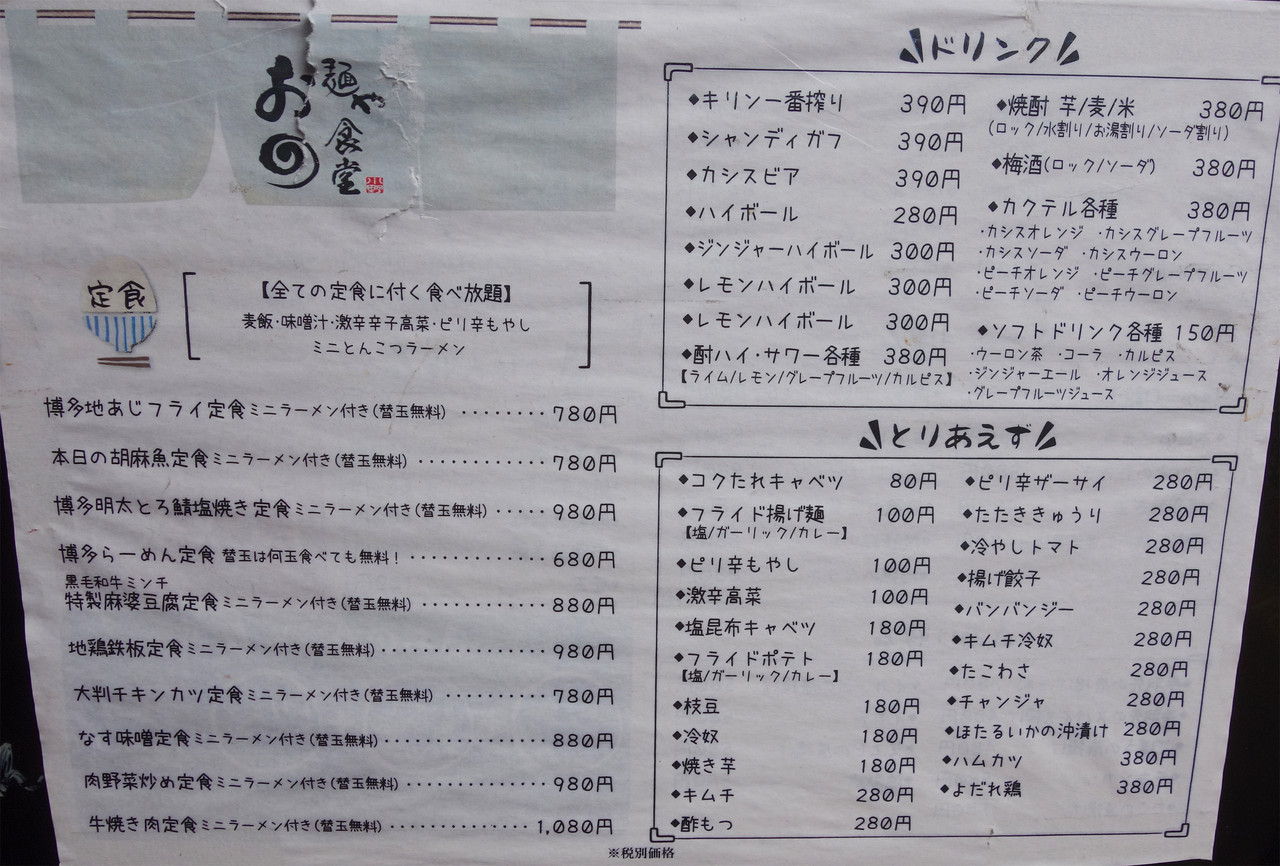 麺や
おの
食堂
小野
定食
【全ての定食に付く食べ放題】
麦飯・味噌汁・激辛辛子高菜・ピリ辛もやし
ミニとんこつラーメン
博多地あじフライ定食ミニラーメン付き(替玉無料) ········780円
本日の胡麻魚定食ミニラーメン付き(替玉無料) ············780円
博多明太とろ鯖塩焼き定食ミニラーメン付き(替玉無料) ·····980円
博多らーめん定食 替玉は何玉食べても無料！ ·············680円
黒毛和牛ミンチ
特製麻婆豆腐定食ミニラーメン付き(替玉無料) ············880円
地鶏鉄板定食ミニラーメン付き(替玉無料) ················980円
大判チキンカツ定食ミニラーメン付き(替玉無料) ··········780円
なす味噌定食ミニラーメン付き(替玉無料) ················880円
肉野菜炒め定食ミニラーメン付き(替玉無料) ··············980円
牛焼き肉定食ミニラーメン付き(替玉無料) ··············1,080円
ドリンク
◆キリン一番搾り 390円
◆シャンディガフ 390円
◆カシスビア 390円
◆ハイボール 280円
◆ジンジャーハイボール 300円
◆レモンハイボール 300円
◆レモンハイボール 300円
◆酎ハイ・サワー各種 380円
【ライム/レモン/グレープフルーツ/カルピス】
◆焼酎 芋/麦/米 380円
(ロック/水割り/お湯割り/ソーダ割り)
◆梅酒(ロック/ソーダ) 380円
◆カクテル各種 380円
・カシスオレンジ ・カシスグレープフルーツ
・カシスソーダ ・カシスウーロン
・ピーチオレンジ ・ピーチグレープフルーツ
・ピーチソーダ ・ピーチウーロン
◆ソフトドリンク各種 150円
・ウーロン茶 ・コーラ ・カルピス
・ジンジャーエール ・オレンジジュース
・グレープフルーツジュース
とりあえず
◆コクたれキャベツ 80円
◆フライド揚げ麺 100円
【塩/ガーリック/カレー】
◆ピリ辛もやし 100円
◆激辛高菜 100円
◆塩昆布キャベツ 180円
◆フライドポテト 180円
【塩/ガーリック/カレー】
◆枝豆 180円
◆冷奴 180円
◆焼き芋 180円
◆キムチ 280円
◆酢もつ 280円
◆ピリ辛ザーサイ 280円
◆たたききゅうり 280円
◆冷やしトマト 280円
◆揚げ餃子 280円
◆バンバンジー 280円
◆キムチ冷奴 280円
◆たこわさ 280円
◆チャンジャ 280円
◆ほたるいかの沖漬け 280円
◆ハムカツ 380円
◆よだれ鶏 380円
※税別価格